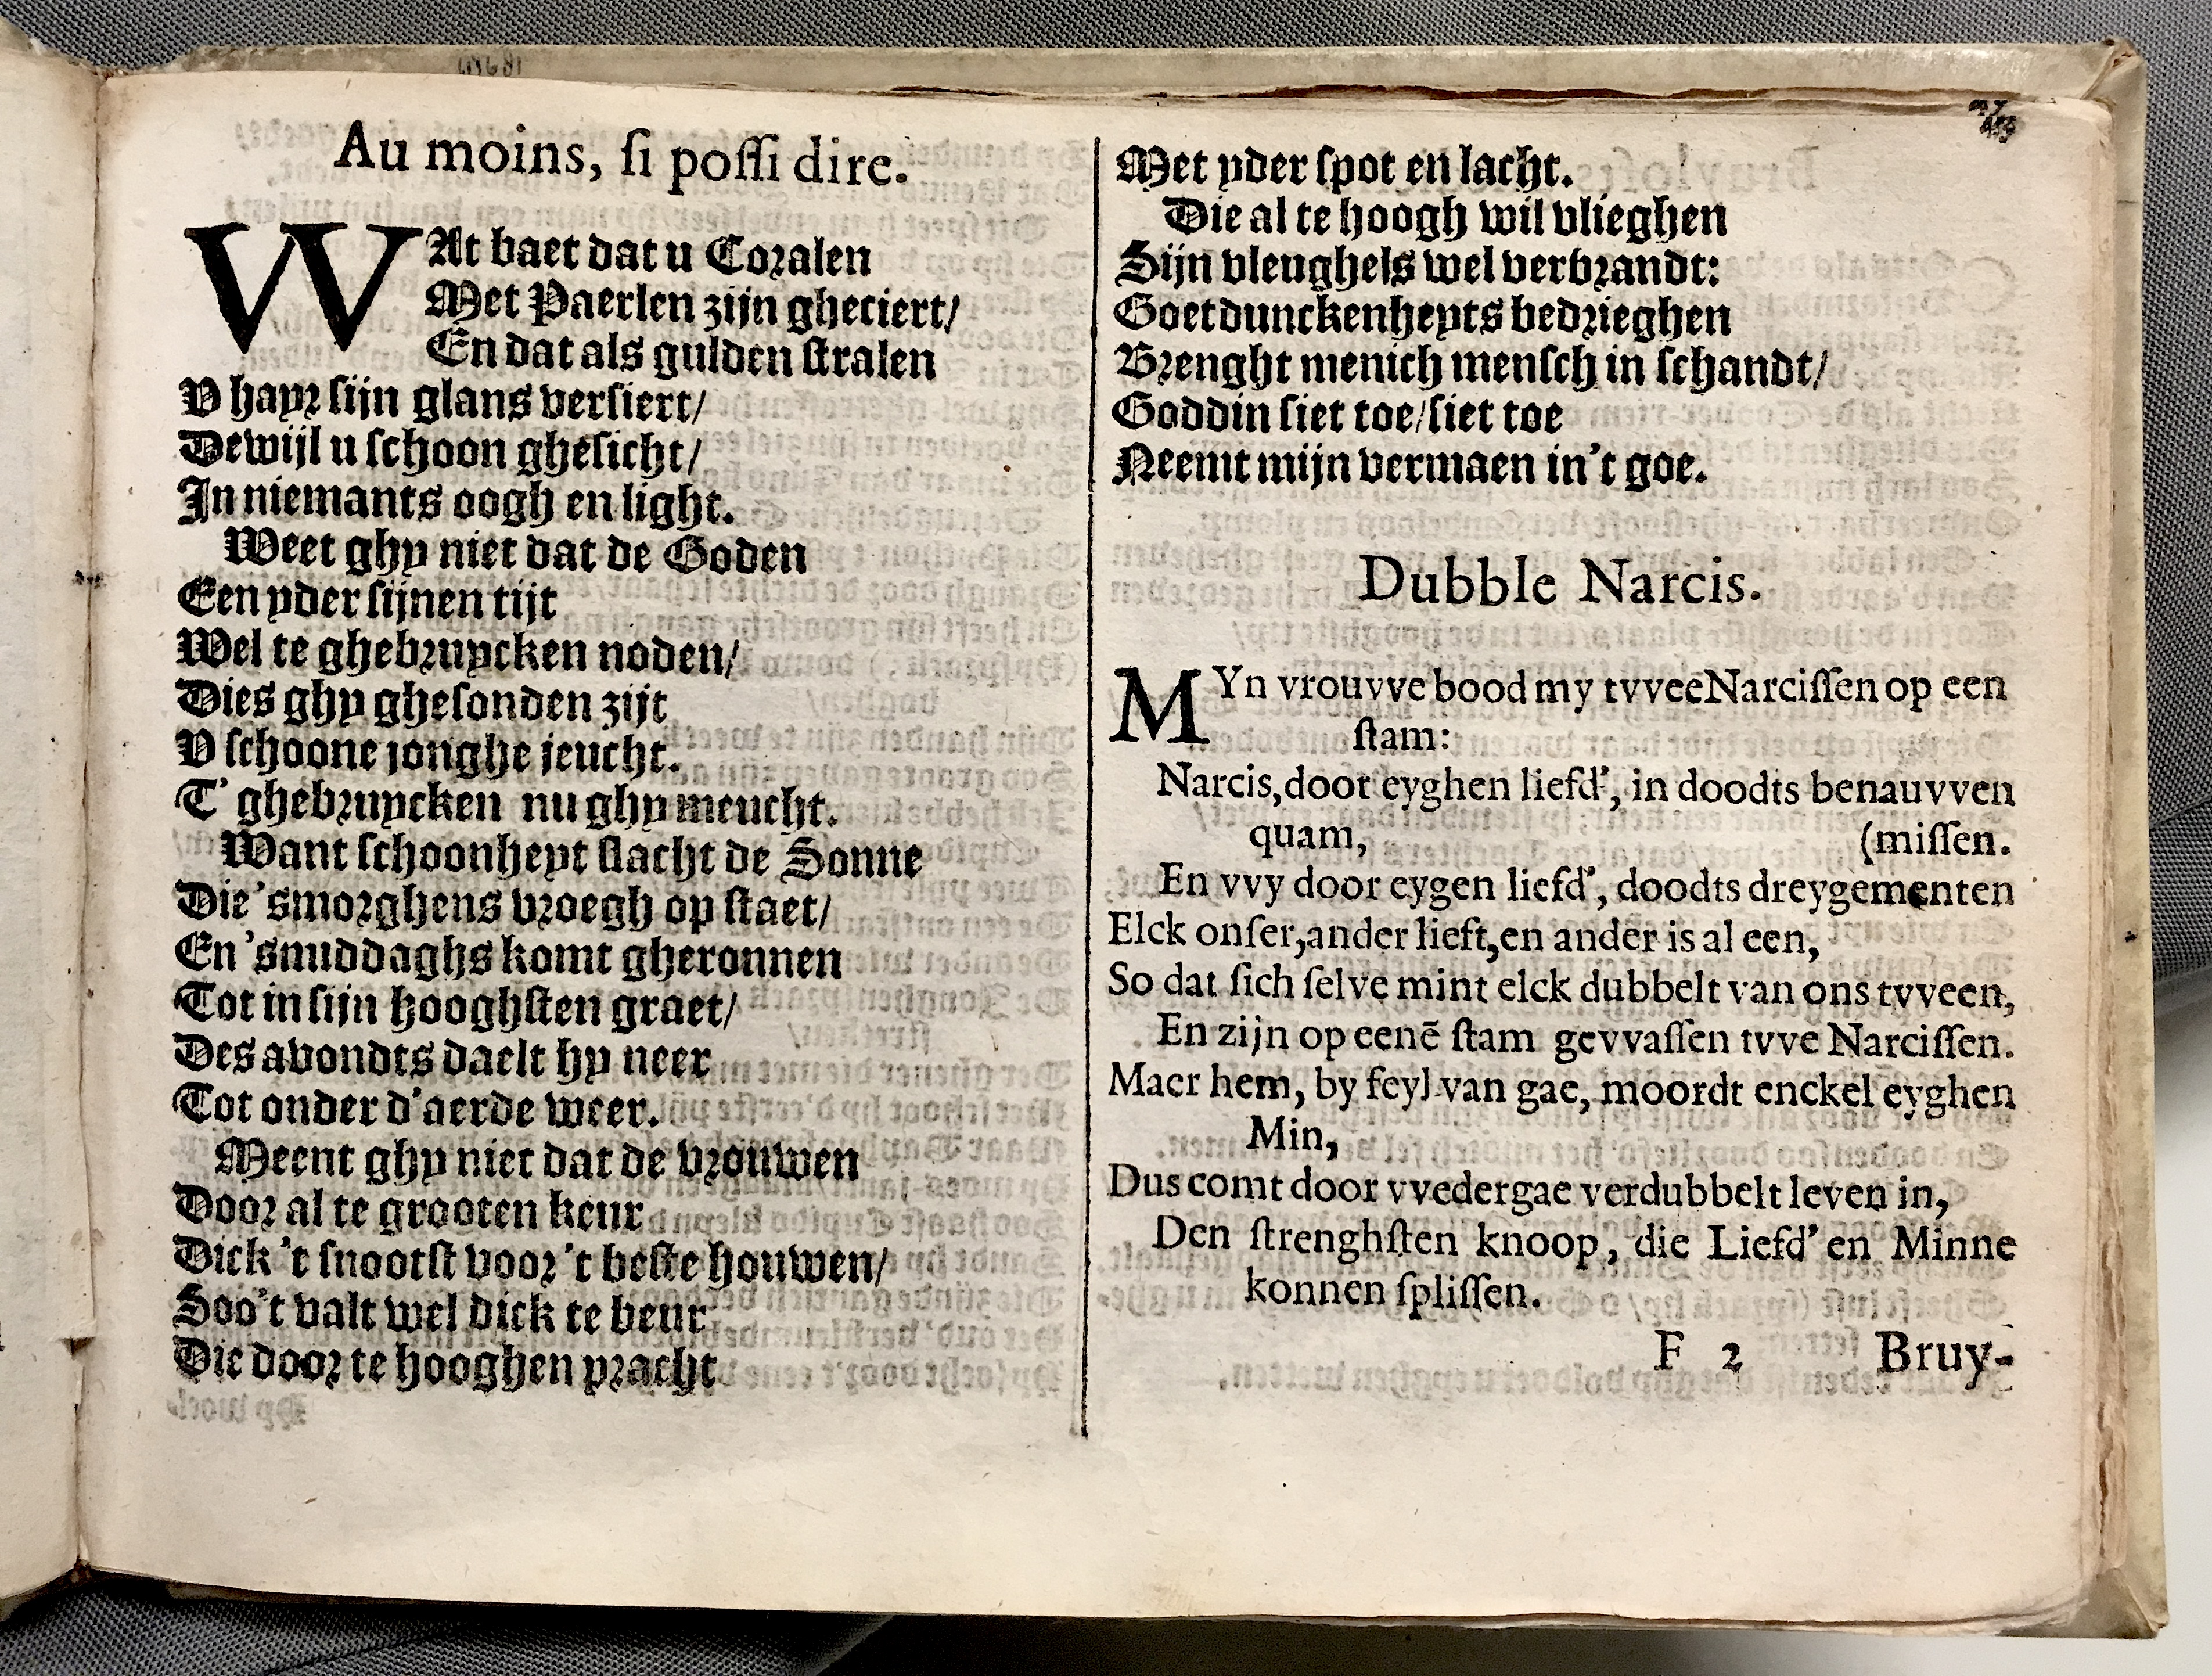 Au moins, ſi poſſi dire.
WAt baet dat u Coralen
Met Paerlen zijn gheciert/
En dat als gulden ſtralen
V hayr ſijn glans verſiert/
Dewijl u ſchoon gheſicht/
In niemants oogh en light.
Weet ghy niet dat de Goden
Een yder ſijnen tijt
Wel te ghebruycken noden/
Dies ghy gheſonden zijt
V ſchoone jonghe jeucht.
T' ghebruycken nu ghy meucht.
Want ſchoonheyt ſlacht de Sonne
Die 'smorghens vroegh op ſtaet/
En 'smiddaghs komt gheronnen
Tot in ſijn hooghſten graet/
Des avondts daelt hy neer
Tot onder d'aerde weer.
Meent ghy niet dat de vrouwen
Door al te grooten keur
Dick 't ſnootſt voor 't beſte houwen/
Soo't valt wel dick te beur
Die door te hooghen pracht
Met yder ſpot en lacht.
Die al te hoogh wil vlieghen
Sijn vleughels wel verbrandt:
Goetdunckenheyts bedrieghen
Brenght menich menſch in ſchandt/
Goddin ſiet toe/ſiet toe
Neemt mijn vermaen in't goe.
Dubble Narcis.
MYn vrouvve bood my tvvee Narciſſen op een
ſtam:
Narcis, door eyghen liefd', in doodts benauvven
quam, (miſſen.
En vvy door eygen liefd', doodts dreygementen
Elck onſer, ander lieft, en ander is al een,
So dat ſich ſelve mint elck dubbelt van ons tvveen,
En zijn op eenē ſtam gevvaſſen tvve Narciſſen.
Maer hem, by feyl van gae, moordt enckel eyghen
Min,
Dus comt door vvedergae verdubbelt leven in,
Den ſtrenghſten knoop, die Liefd' en Minne
konnen ſpliſſen.
F 2 Bruy-